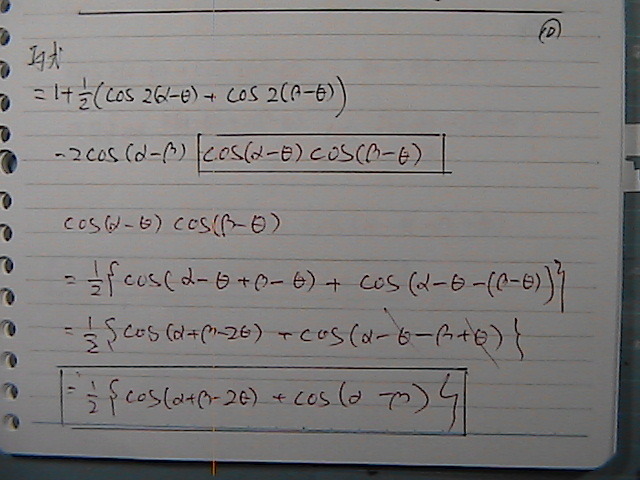 (D)
= 1 + 1/2 (cos 2(α-θ) + cos 2(β-θ))
- 2cos(α-β) cos(α-θ) cos(β-θ)
cos(α-θ) cos(β-θ)
= 1/2 { cos(α-θ+β-θ) + cos(α-θ-(β-θ)) }
= 1/2 { cos(α+β-2θ) + cos(α-θ-β+θ) }
= 1/2 { cos(α+β-2θ) + cos(α-β) }